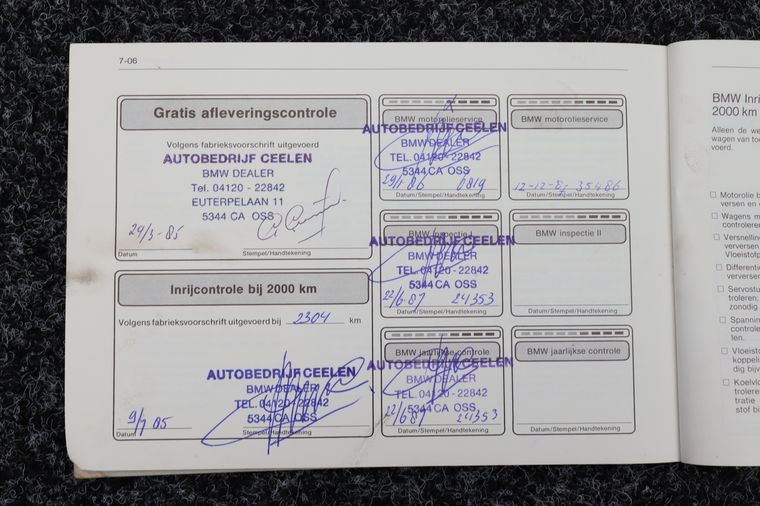 7-06
Gratis afleveringscontrole
Volgens fabrieksvoorschrift uitgevoerd
AUTOBEDRIJF CEELEN
BMW DEALER
Tel. 04120 - 22842
EUTERPELAAN 11
5344 CA OSS
29/3-85
Datum
Stempel/Handtekening
Inrijcontrole bij 2000 km
Volgens fabrieksvoorschrift uitgevoerd bij 2304 km
AUTOBEDRIJF CEELEN
BMW DEALER
TEL. 04120 - 22842
5344 CA OSS
9/7 85
Datum
Stempel/Handtekening
BMW motorolieservice
AUTOBEDRIJF CEELEN
BMW DEALER
TEL. 04120 - 22842
5344 CA OSS
29/1 86
Datum/Stempel/Handtekening
BMW motorolieservice
35486
Datum/Stempel/Handtekening
BMW inspectie I
AUTOBEDRIJF CEELEN
BMW DEALER
TEL. 04120 - 22842
5344 CA OSS
22/6 87 24353
Datum/Stempel/Handtekening
BMW inspectie II
Datum/Stempel/Handtekening
BMW jaarlijkse controle
AUTOBEDRIJF CEELEN
BMW DEALER
TEL. 04120 - 22842
5344 CA OSS
22/6 87 24353
Datum/Stempel/Handtekening
BMW jaarlijkse controle
Datum/Stempel/Handtekening
BMW Inri
2000 km
Alleen de we
wagen van toe
voerd.
Motorolie b
versen en
Wagens m
controleren
Versnelling
verversen
Vloeistofp
Differenti
ververse
Servostu
troleren;
zonodig
Spannin
controle
len.
Vloeisto
koppeli
dig bijv
Koelvlo
trolere
tratie
stof bi